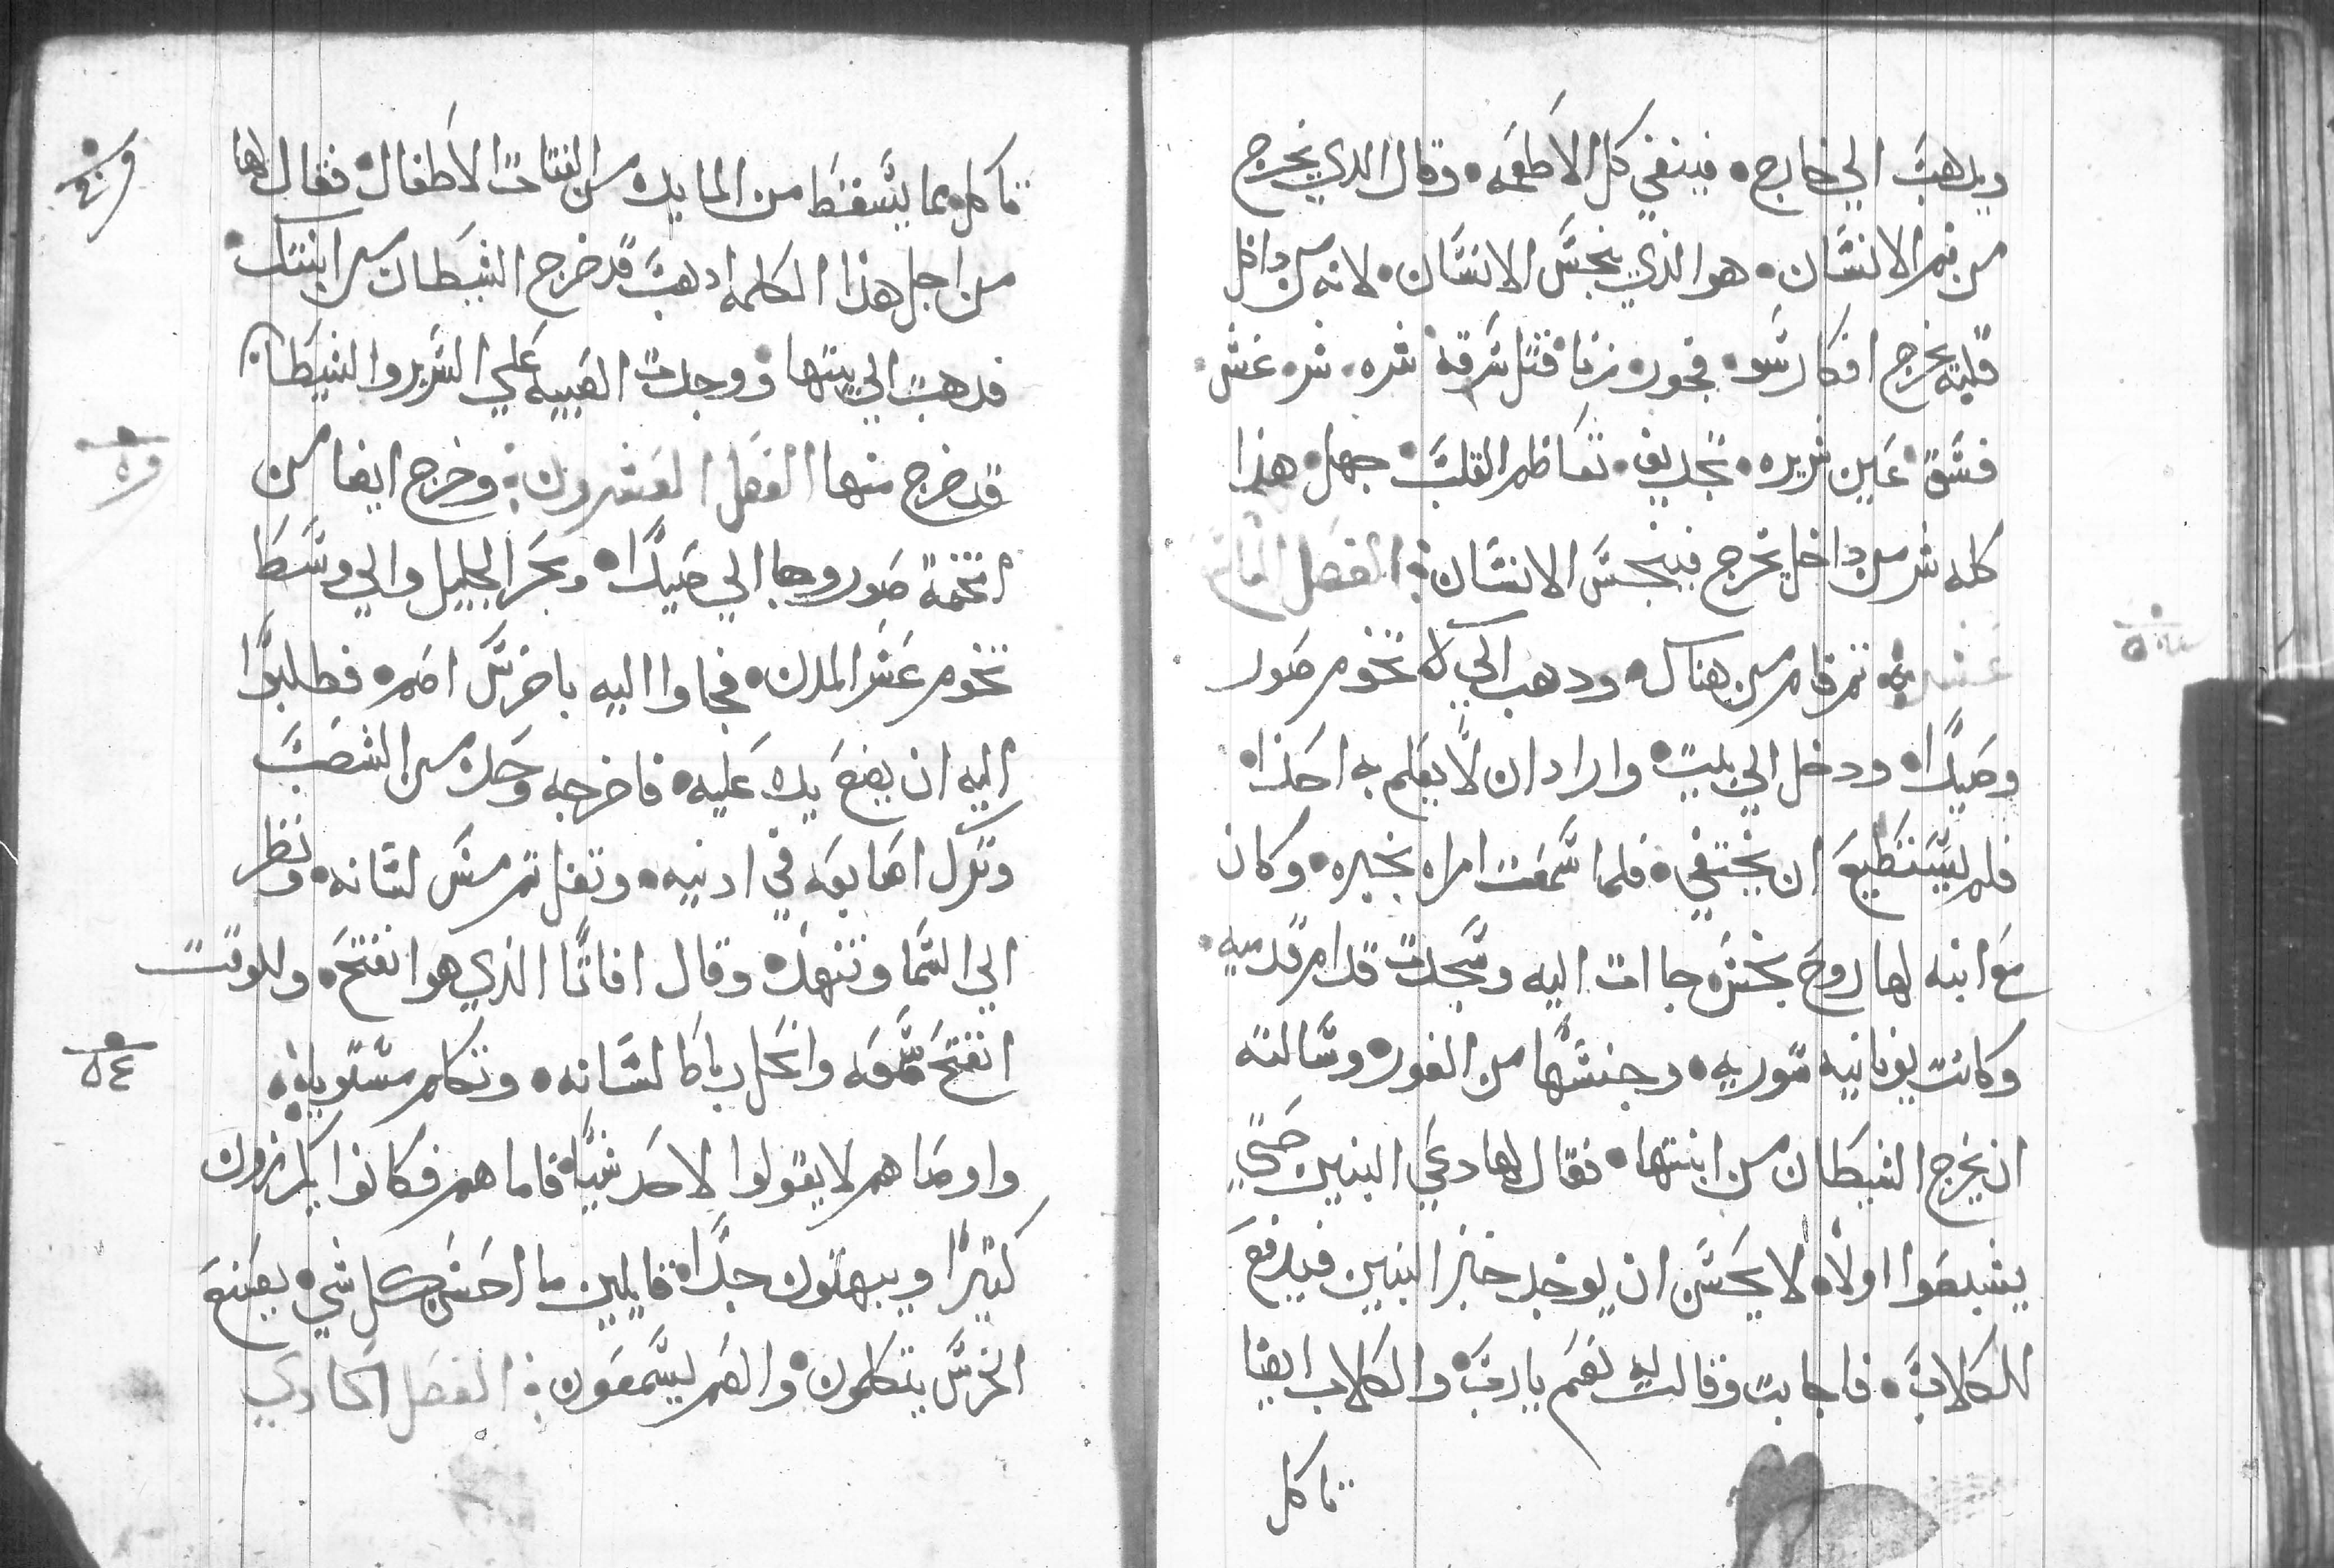 ويدهب الي خارج • فينفي كل الاطعمه • وقال الدي يخرج
من فم الانسان • هو الذي ينجس الانسان • لانه من داخل
قلبه يخرج افكار سو • فجور • زنا • قتل سرقه • شره • شر • غش •
فسق • عين شريره • تجديف • تعاظم القلب • جهل • هذا
كله شر من داخل يخرج فينجس الانسان • الفصل التاسع
عشر • تم قام من هناك • ودهب الي تخوم صور
وصيدا • ودخل الي بيت • واراد ان لا يعلم به احدا •
فلم يستطيع ان يختفي • فلما سمعت امراه بخبره • وكان
مع ابنه لها روح نجس • جاات اليه وسجدت قدام قدميه •
وكانت يونانيه سوريه • وجنسها من الغور • وسالته
ان يخرج الشيطان من ابنتها • فقال لها دعي البنين حتي
يشبعوا اولا • لا يحسن ان يوخد خبز البنين فيدفع
للكلاب • فاجابت وقالت له نعم يارب • والكلاب ايضا
تاكل
تاكل مما يسقط من المايده من فتات الاطفال • فقال لها
من اجل هذا الكلمه ادهب قد خرج الشيطان من ابنتك •
فدهبت الي بيتها • ووجدت الصبيه علي السرير والشيطان
قد خرج منها الفصل العشرون • وخرج ايضا من
تخمة صور وجا الي صيدا • وبحر الجليل والي وسط
تخوم عشر المدن • فجاوا اليه باخرس اصم • فطلبوا
اليه ان يضع يده عليه • فاخرجه وحده من الشعب
وترك اصابعه في ادنيه • وتفل تم مس لسانه • ونظر
الي السما وتنهد • وقال افاتا الذي هو انفتح • وللوقت
انفتح سمعه وانحل رباط لسانه • وتكلم مستويا •
واوصاهم لا يقولوا لاحد شيا • فاما هم فكانوا يكرزون
كتيرا ويبهتون جدا • قايلين ما احسن كل شي • يصنع
الخرس يتكلمون • والصم يسمعون • الفصل الحادي